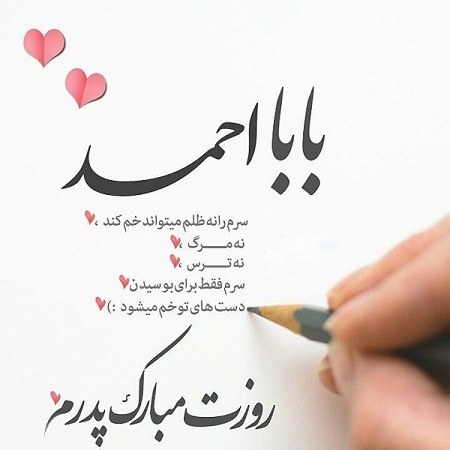 بابا احمد
سرم رانه ظلم میتواند خم کند ،
نه مـــرگ ،
نه تـــرس ،
سرم فقط برای بوسیدن
دست های تو خم میشود :)
روزت مبارک پدرم